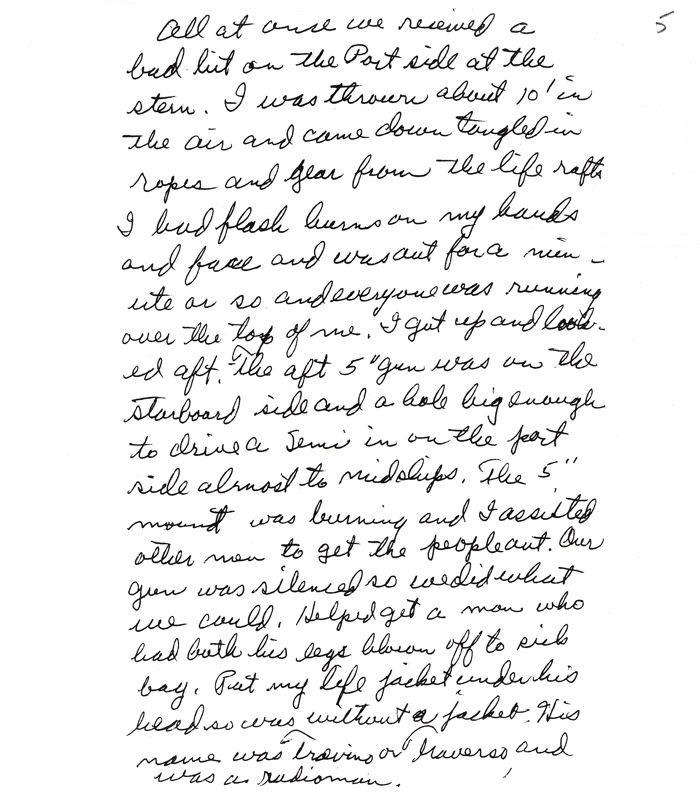 5
All at once we received a
bad hit on the Port side at the
stern. I was thrown about 10' in
the air and came down tangled in
ropes and gear from the life rafts
I had flash burns on my hands
and face and was out for a min-
ute or so and everyone was running
over the top of me. I got up and look-
ed aft. The aft 5" gun was on the
starboard side and a hole big enough
to drive a Semi in on the port
side almost to midships. The 5"
mount was burning and I assisted
other men to get the people out. Our
gun was silenced so we did what
we could. Helped get a man who
had both his legs blown off to sick
bay. Put my life jacket under his
head so was without a jacket. His
name was "Travino or Traverso" and
was a radioman.